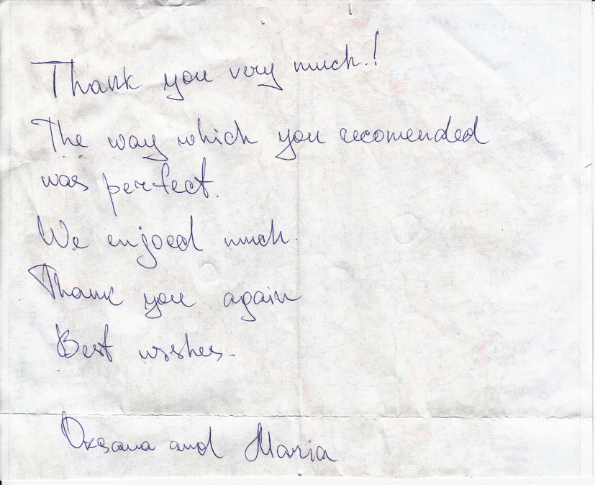 Thank you very much!
The way which you recomended
was perfect.
We enjoed much.
Thank you again
Best wishes.
Oksana and Maria